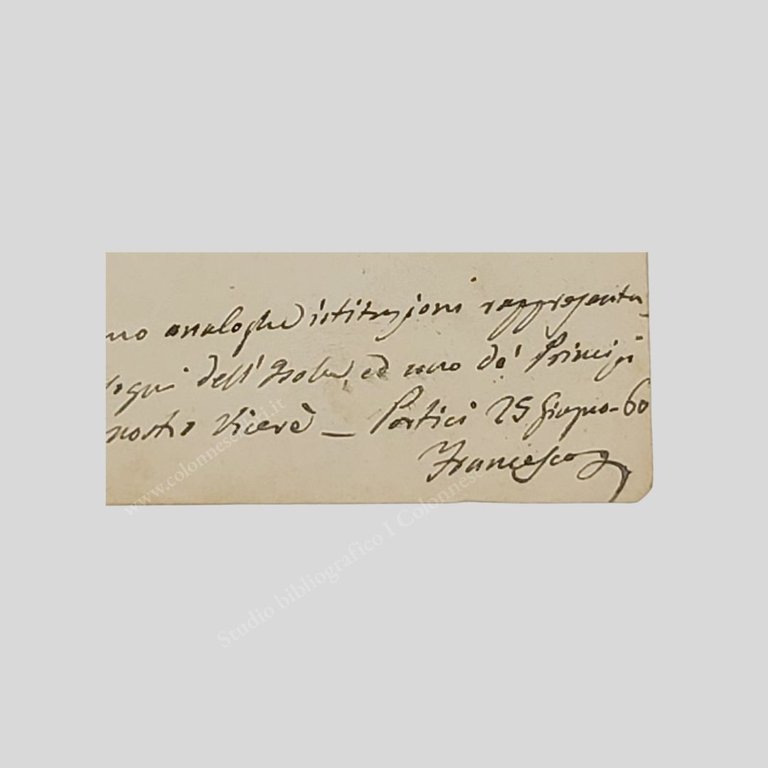 no analoghe istituzioni rappresenta_
sogni dell'Isola, ed uno de' Principi
nostro Vicerè _ Portici 25 giugno_60
Francesco
www.colonnese.it
Studio bibliografico I Colonnese